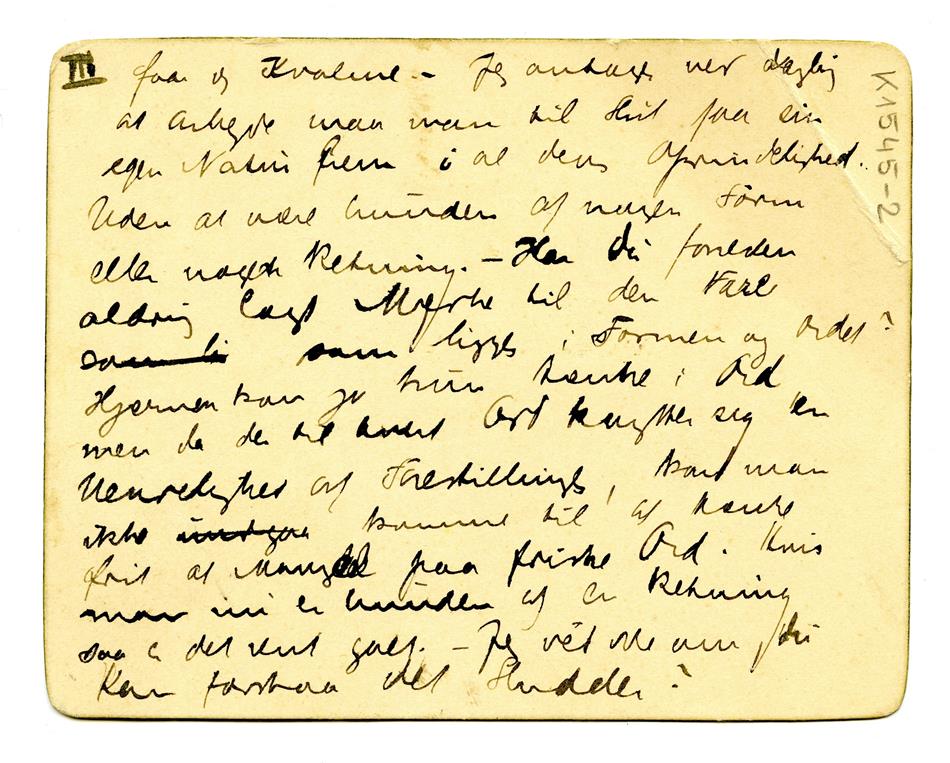 III faar og Kvalme - Jeg antager ved daglig
at arbejde maa man til Slut faa sin
egen Natur frem i al dens Oprindelighed.
Uden at være bunden af nogen Form
eller nogen Retning. - Har du foruden
aldrig lagt Mærke til den Fare
som li som ligger i Formen og Ordet?
Hjærnen kan jo kun tænke i Ord
men da der til hvert Ord knytter sig en
Uendelighed af Forestillinger, kan man
ikke undgaa komme til at tænke
frit af Mangel paa friske Ord. Hvis
man nu er bunden af en Retning
saa er det rent galt. - Jeg véd ikke om du
kan forstaa det Sludder?
K1545-2